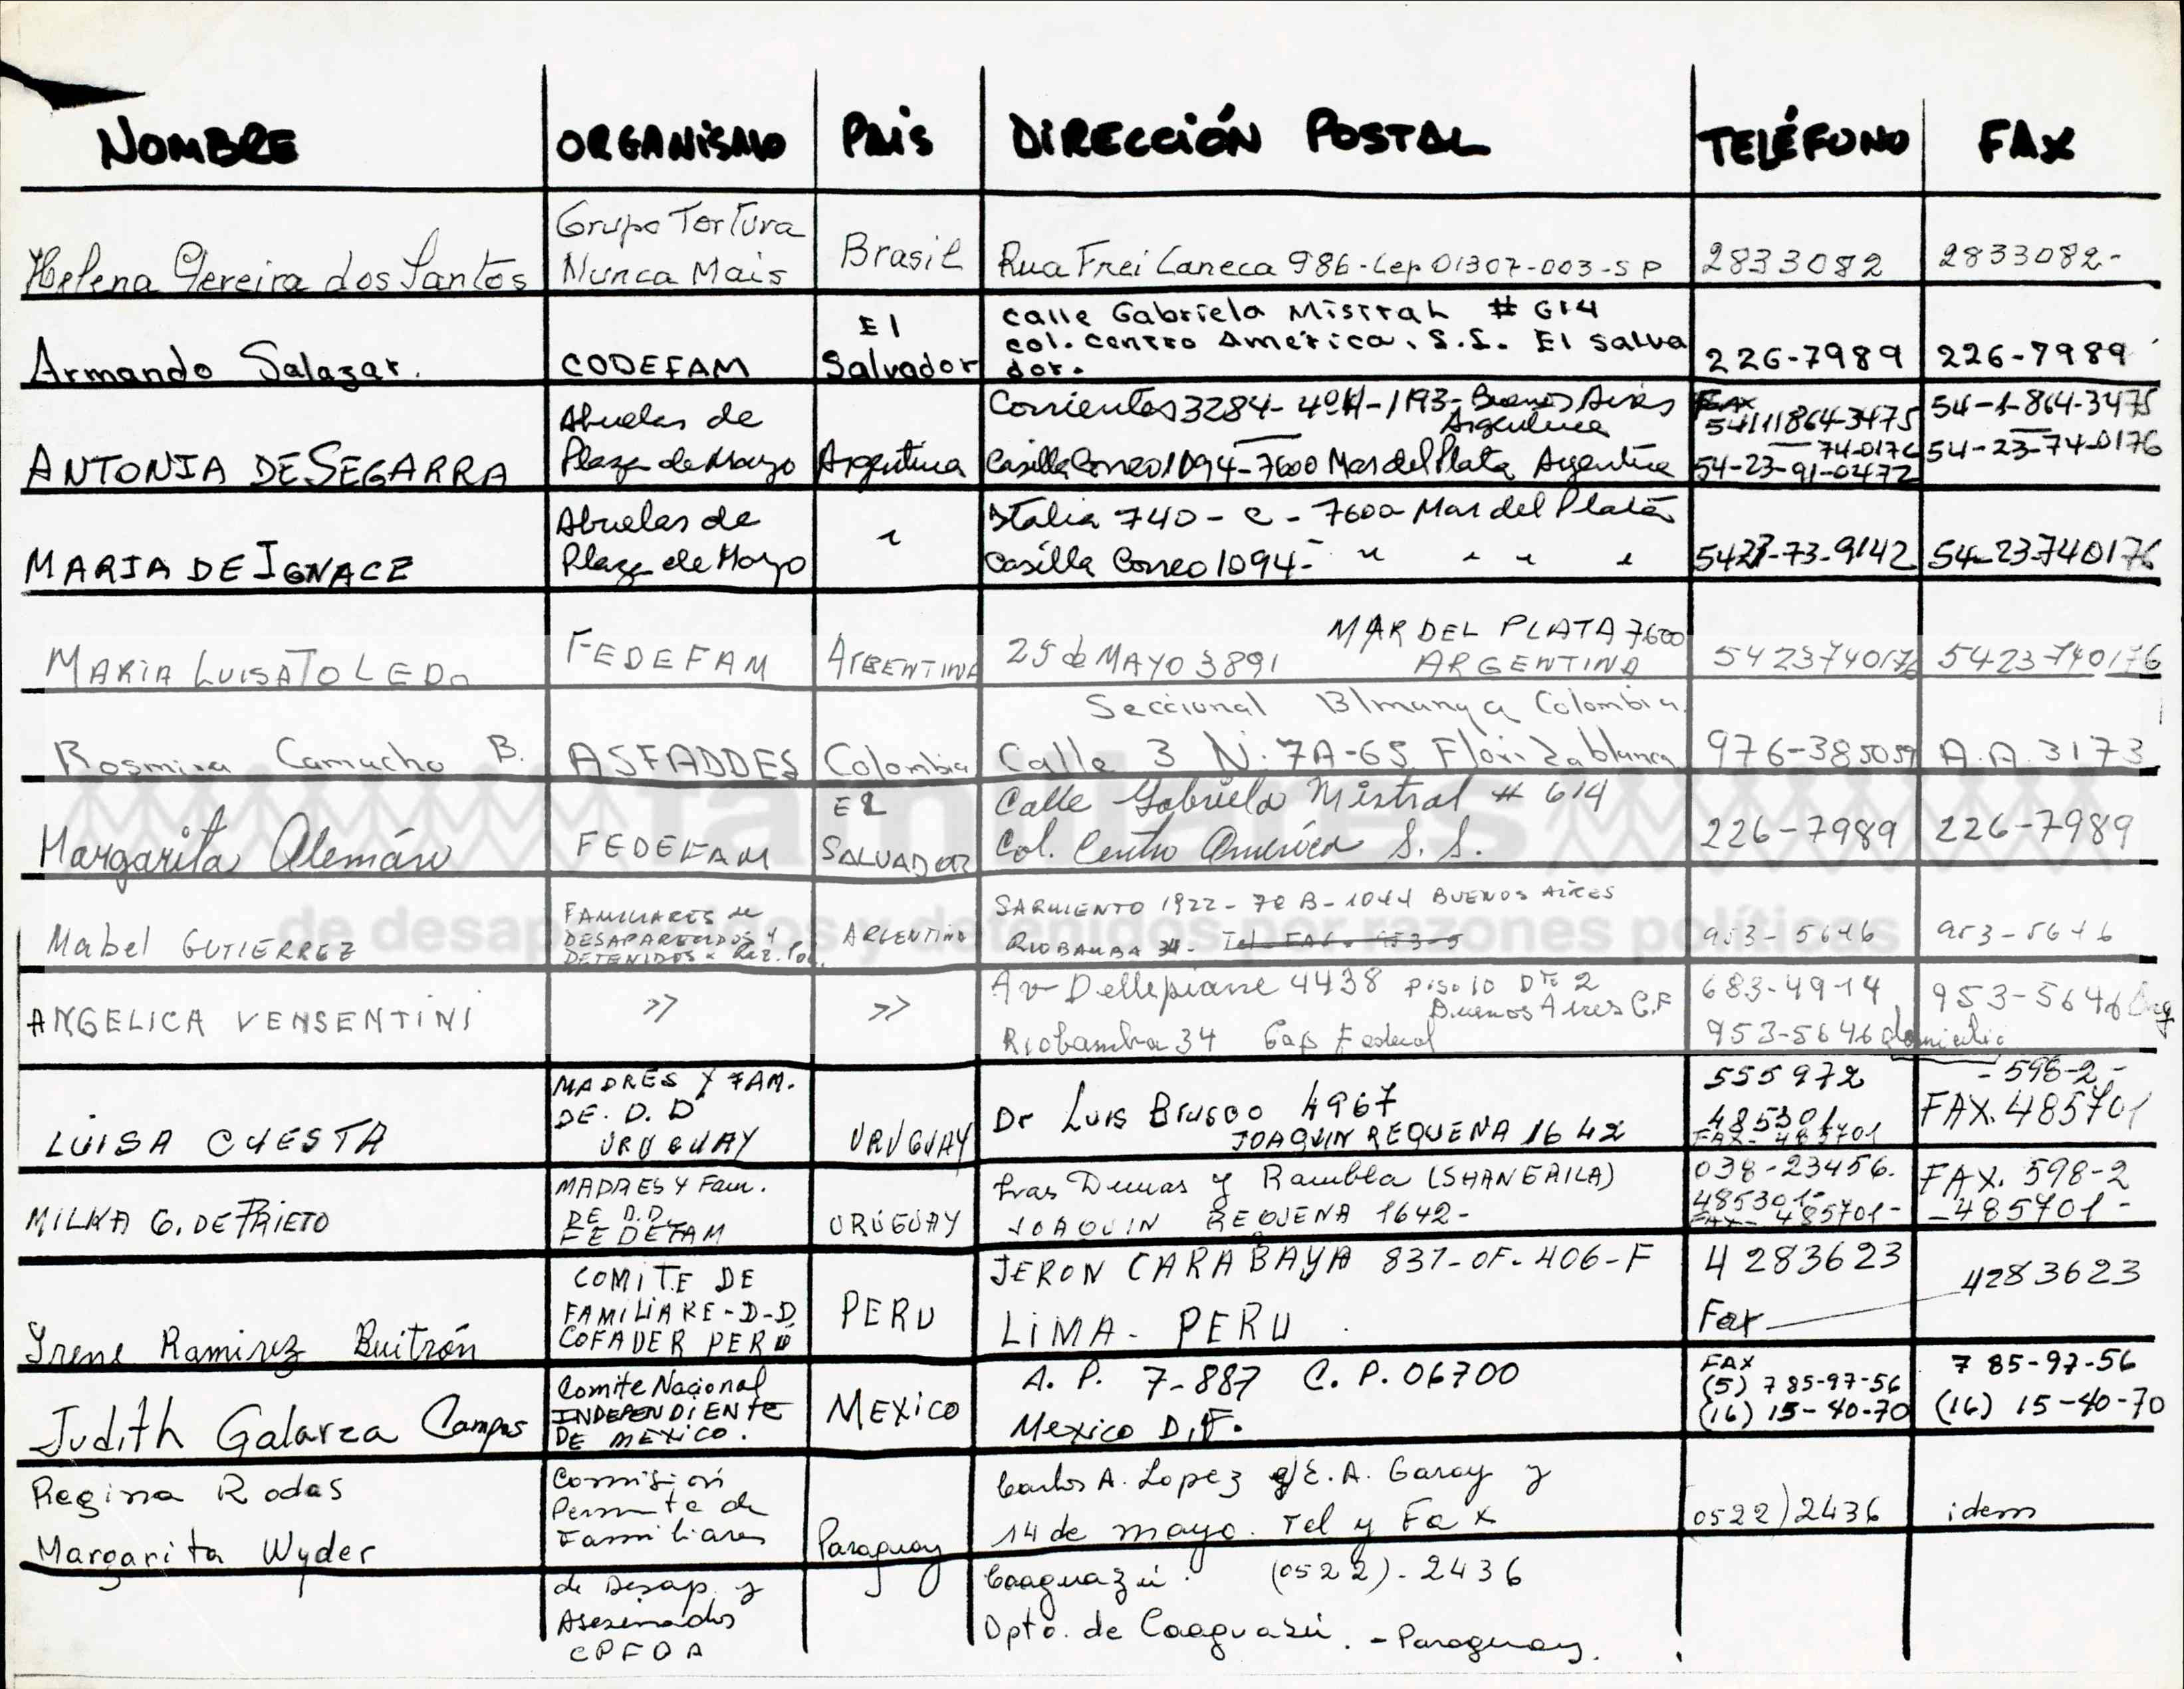 NOMBRE ORGANISMO PAIS DIRECCIÓN POSTAL TELÉFONO FAX
Grupo Tortura
Helena Pereira dos Santos Nunca Mais Brasil Rua Frei Caneca 986-Cep 01307-003-SP 2833082 2833082-
calle Gabriela Mistral # 614
El col. Centro América. S.S. El Salva
Armando Salazar. CODEFAM Salvador dor. 226-7989 226-7989
Abuelas de Corrientes 3284-4ºH-1193-Buenos Aires Fax 54-1-864-3475
Argentina 54111864-3475
740176 54-23-74-0176
ANTONIA DE SEGARRA Plaza de Mayo Argentina Casilla Correo 1094-7600 Mar del Plata Argentina 54-23-91-0472
Abuelas de Italia 740-C-7600 Mar del Plata
MARIA DE IGNACE Plaza de Mayo " Casilla Correo 1094- " " " " 5423-73-9142 54-23740176
MAR DEL PLATA 7600
MARIA LUISA TOLEDO FEDEFAM ARGENTINA 25 de MAYO 3891 ARGENTINA 5423740176 5423-740176
Seccional B/manga Colombia.
Rosmira Camacho B. ASFADDES Colombia Calle 3 N. 7A-65 Floridablanca 976-385059 A.A. 3173
El Calle Gabriela Mistral # 614
Margarita Alemán FEDEFAM SALVADOR Col. Centro América S.S. 226-7989 226-7989
familiares
de desaparecidos y detenidos por razones políticas
FAMILIARES de SARMIENTO 1922-7º B-1044 BUENOS AIRES
Mabel GUTIERREZ DESAPARECIDOS Y ARGENTINA RIOBAMBA 34- Tel-FAX. 953-5 953-5646 953-5646
DETENIDOS x Raz. Pol.
Av Dellepiane 4438 piso 10 Dto 2 683-4914
ANGELICA VENSENTINI >> >> Buenos Aires C.F 953-5646 Org
Riobamba 34 Cap Federal 953-5646 domicilio
MADRES Y FAM. 555972 -598-2-
DE. D.D Dr Luis Brusco 4967 485301 FAX. 485701
LUISA CUESTA URUGUAY URUGUAY JOAQUIN REQUENA 1642 FAX- 485701
MADRES Y Fam. Tras Dunas y Rambla (SHANGRILA) 038-23456. FAX. 598-2
MILKA G. DE PRIETO DE D.D. URUGUAY JOAQUIN REQUENA 1642- 485301- -485701-
FEDEFAM FAX- 485701-
COMITE DE JERON CARABAYA 831-OF-406-F 4283623 4283623
FAMILIARE-D-D PERU
Irene Ramirez Buitrón COFADER PERÚ LIMA- PERU Fax
Comite Nacional A. P. 7-887 C. P. 06700 FAX 7 85-97-56
INDEPENDIENTE MEXICO (5) 785-97-56
Judith Galarza Campos DE MEXICO. Mexico D.F. (16) 15-40-70 (16) 15-40-70
Regina Rodas Comisión Carlos A. Lopez e/E. A. Garay y
Permte de (0522)2436 idem
Margarita Wyder Familiares Paraguay 14 de mayo. Tel y Fax
de Desap. y Caaguazú. (0522)-2436
Asesinados
Dpto. de Caaguazú. -Paraguay.
CPFDA